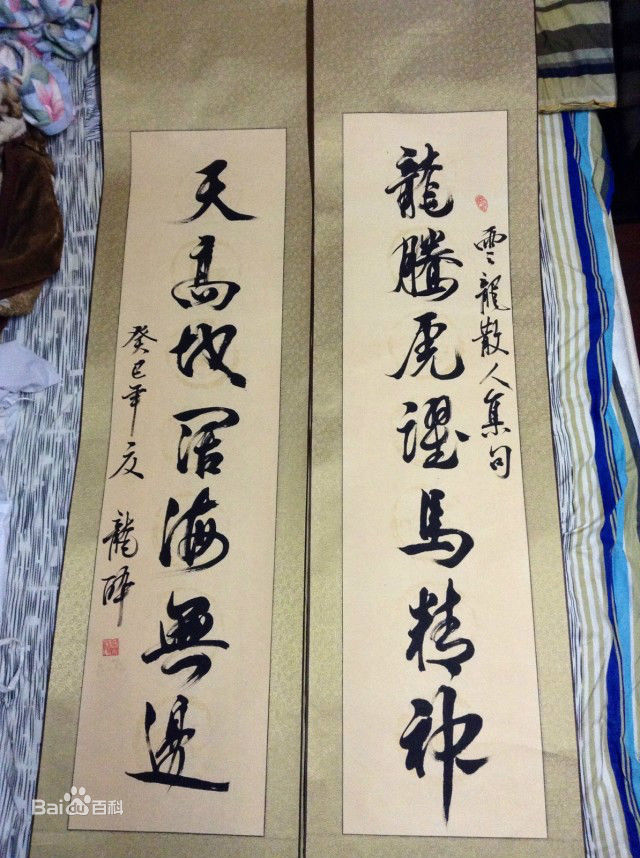 雲龍散人集句
龍騰虎躍馬精神
天高地闊海無邊
癸巳年夏 龍
Bai du 百科